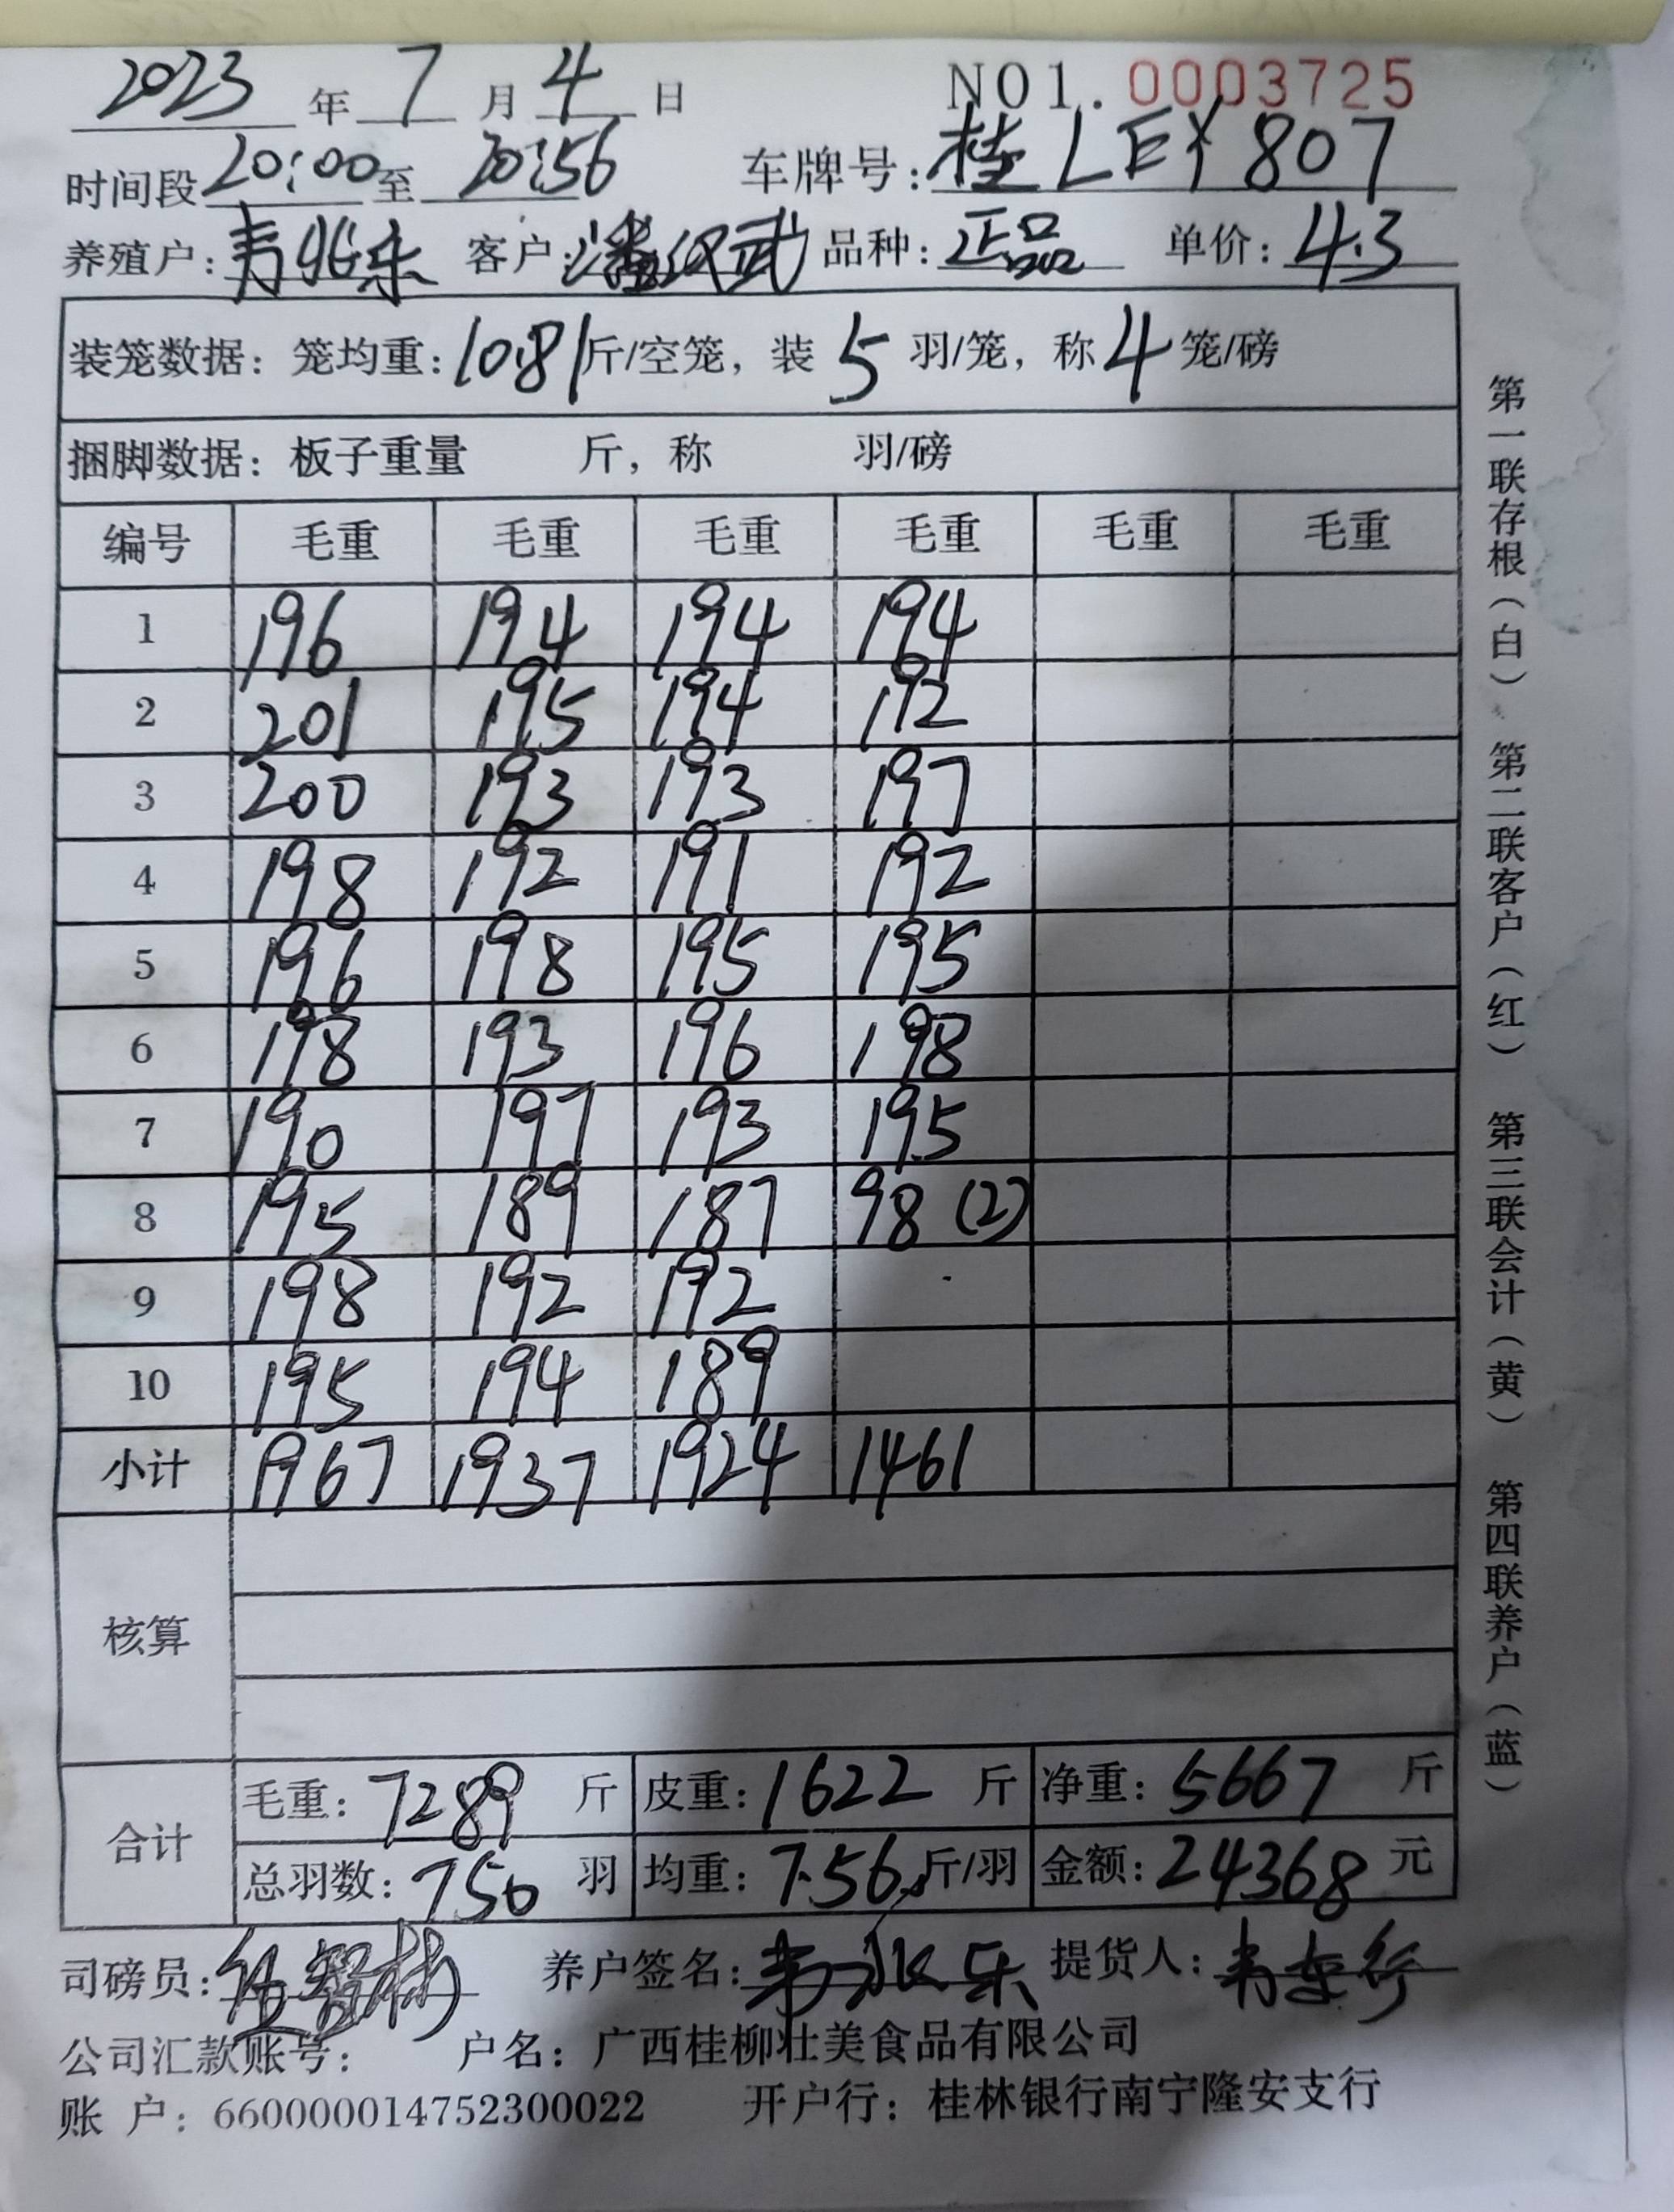 2023年7月4日 NO1.0003725
时间段20:00至20:56 车牌号:桂LEY807
养殖户:韦兆乐 客户:潘武 品种:正品 单价:4.3
装笼数据:笼均重:10.81斤/空笼,装5羽/笼,称4笼/磅
捆脚数据:板子重量 斤,称 羽/磅
编号 毛重 毛重 毛重 毛重 毛重 毛重
1 196 194 194 194
2 201 195 194 192
3 200 193 193 197
4 198 192 191 192
5 196 198 195 195
6 198 193 196 198
7 190 197 193 195
8 195 189 187 98 (2)
9 198 192 192
10 195 194 189
小计 1967 1937 1924 1461
核算
合计
毛重:7289斤 皮重:1622斤 净重:5667斤
总羽数:750羽 均重:7.56斤/羽 金额:24368元
司磅员: 养户签名:韦兆乐 提货人:韦
公司汇款账号: 户名:广西桂柳壮美食品有限公司
账 户:660000014752300022 开户行:桂林银行南宁隆安支行
第一联存根(白) 第二联客户(红) 第三联会计(黄) 第四联养户(蓝)